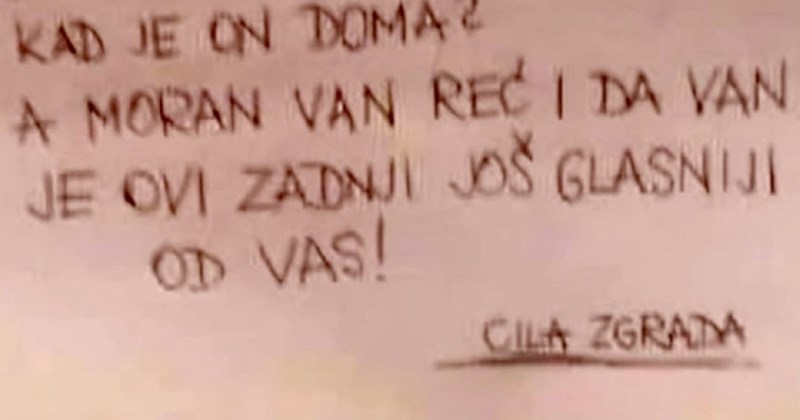 KAD JE ON DOMA?
A MORAN VAN REĆ I DA VAN
JE OVI ZADNJI JOŠ GLASNIJI
OD VAS!
CILA ZGRADA